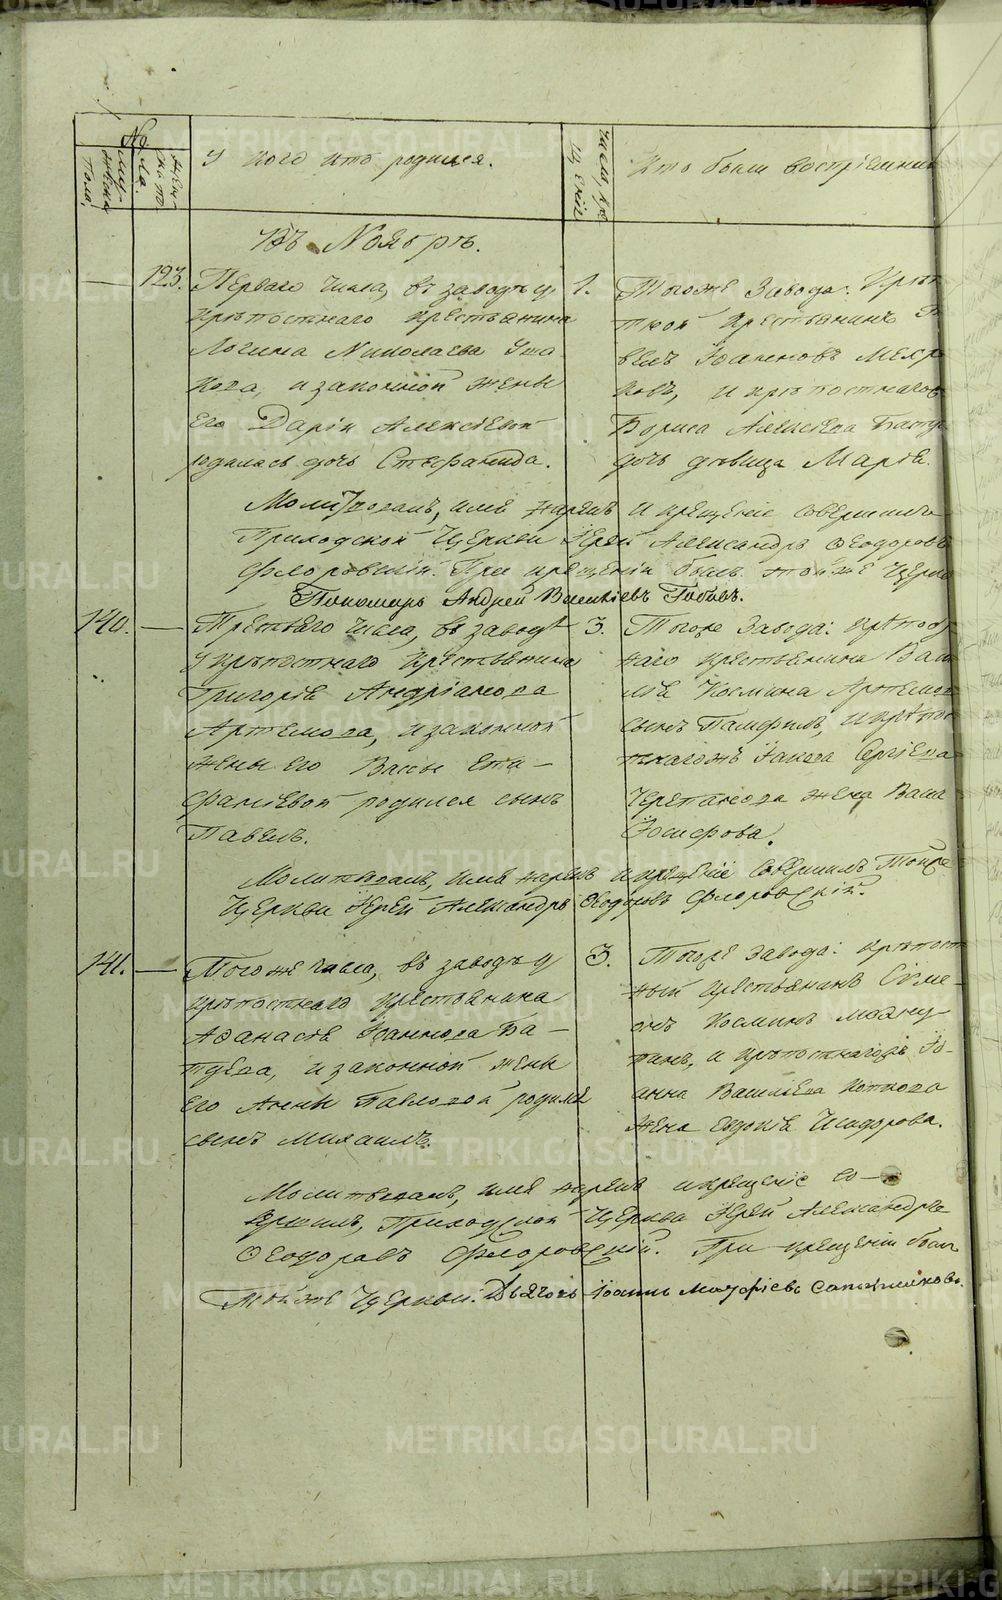 No
Мужска пола,
Женска пола.
У кого кто родился.
Число крещенія
Кто были воспріемник
Въ Ноябрѣ.
123. Перваго числа, въ заводѣ у
крѣпостнаго крестьянина
Логина Николаева Уша
кова, и законной жены
его Даріи Алексіевой
родилась дочь Стефанида.
1.
Тогоже Завода: Крѣп
тной Крестьянинъ
велъ Іоанновъ
ковъ, и крѣпостнагож
Бориса Алексіева
дочь дѣвица Марія.
Молитвовалъ, имя нарекъ и крещеніе совершилъ
Приходской Церкви Іерей Александръ Ѳеодоровъ
Флоровскій. При крещеніи былъ тойже Церкви
Пономарь Андрей Василіевъ
140. Третьяго числа, въ заводѣ
у крѣпостнаго крестьянина
Григорія Андріанова
Артемова, и законной
жены его Вассы Епи-
фаніевой родился сынъ
Павелъ.
3.
Тогоже Завода: крѣпост
наго крестьянина Васи
лія Космина Артемова
сынъ Памфилъ, и крѣпос
тнагожъ Іакова Сергіева
Черепанова жена Васса
Іосифова.
Молитвовалъ, имя нарекъ и крещеніе совершилъ Тойже
Церкви Іерей Александръ Ѳеодоровъ Флоровскій.
141. Тогоже числа, въ заводѣ у
крѣпостнаго крестьянина
Аѳанасія Іоаннова Ба-
туева, и законной жены
его Анны Павловой родился
сынъ Михаилъ.
3.
Тогоже завода: крѣпост
ный крестьянинъ Сѵме-
онъ Косминъ
и крѣпостнагожъ Іо-
анна Васильева Коткова
жена Евдокія Исидорова.
Молитвовалъ, имя нарекъ и крещеніе со-
вершилъ, Приходской Церкви Іерей Александръ
Ѳеодоровъ Флоровскій. При крещеніи былъ
тойже Церкви: Дьячокъ Іоаннъ Макаріевъ Сапожниковъ.
METRIKI.GASO-URAL.RU